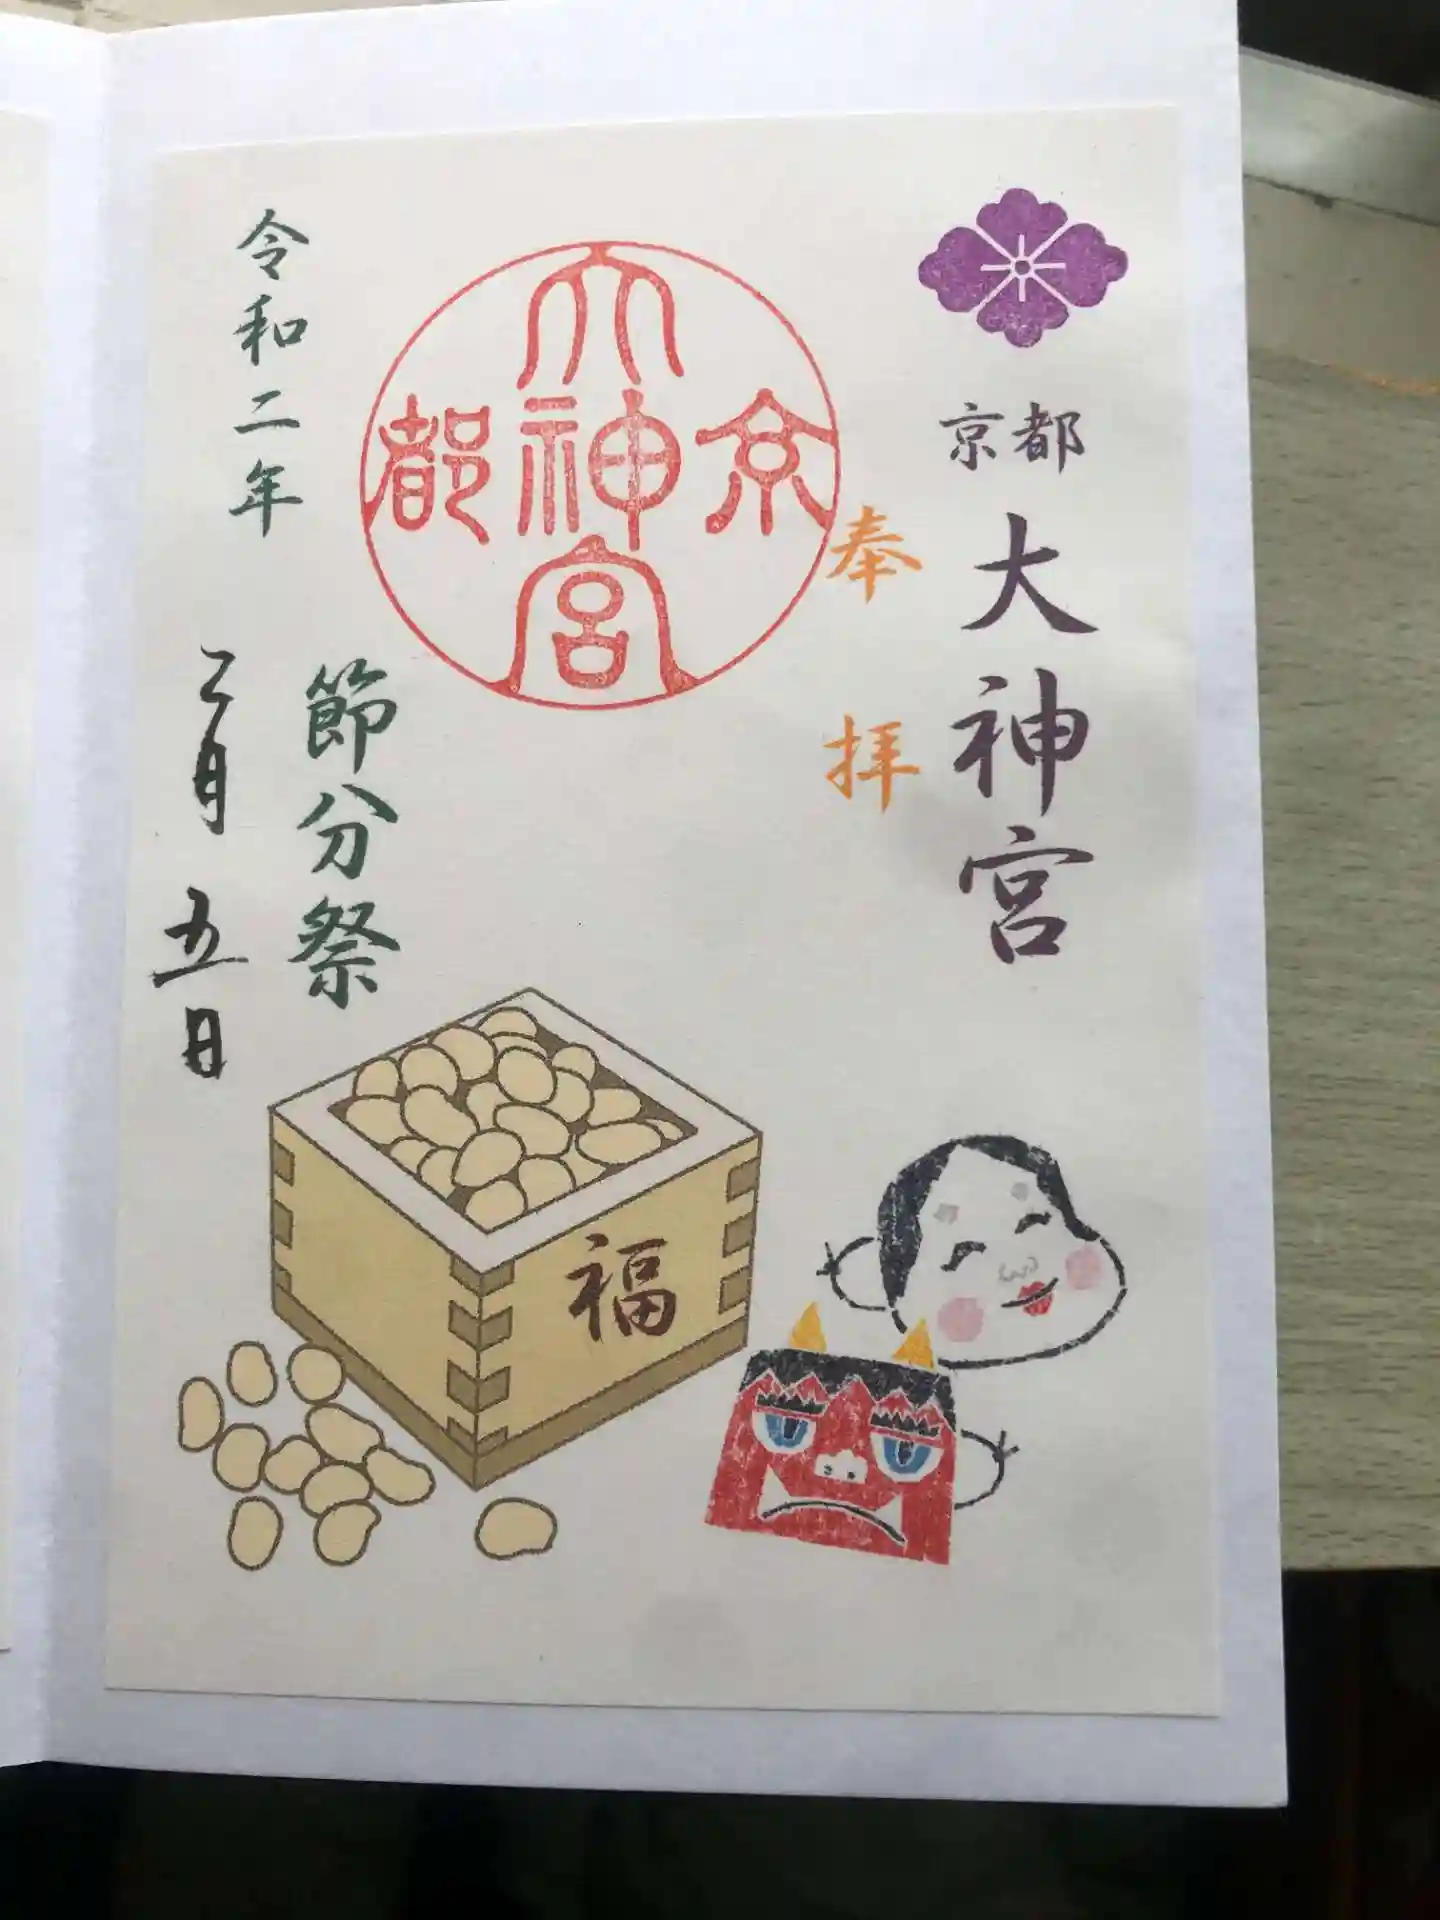 京都
大神宮
奉拝
京都
大神宮
節分祭
令和二年
二月五日
福